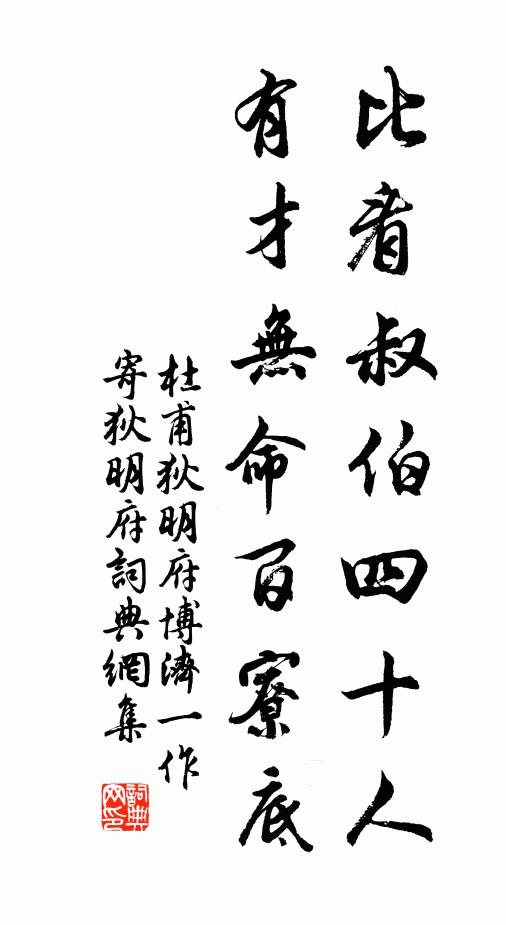 比看叔伯四十人
有才無命百寮底
杜甫狄明府博濟一作
寄狄明府詞典網集
詞典网印